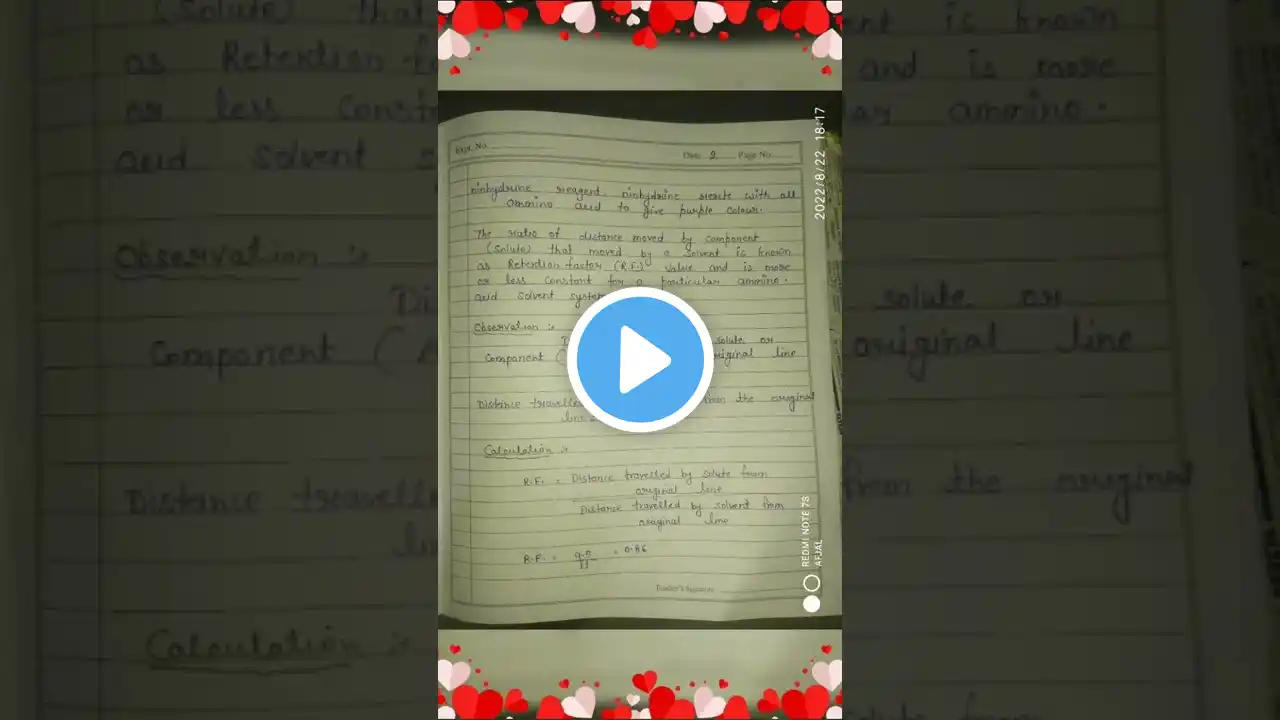 Expt. No.
Date 2 Page No.
ninhydrine reagent. ninhydrine reacte with all
ammino acid to give purple colour.
The ratio of distance moved by component
(solute) that moved by a solvent is known
as Retention factor (R.F.) value and is more
or less constant for a particular ammino.
and solvent system
Observation :-
solute or
Component ( original line
Distance travelled from the original
line
Calculation :-
R.F. = Distance travelled by solute from
original line
Distance travelled by solvent from
original line
R.F. = 9.5 = 0.86
11
Teacher's Signature
2022/8/22 18:17
REDMI NOTE 7S
AFJAL